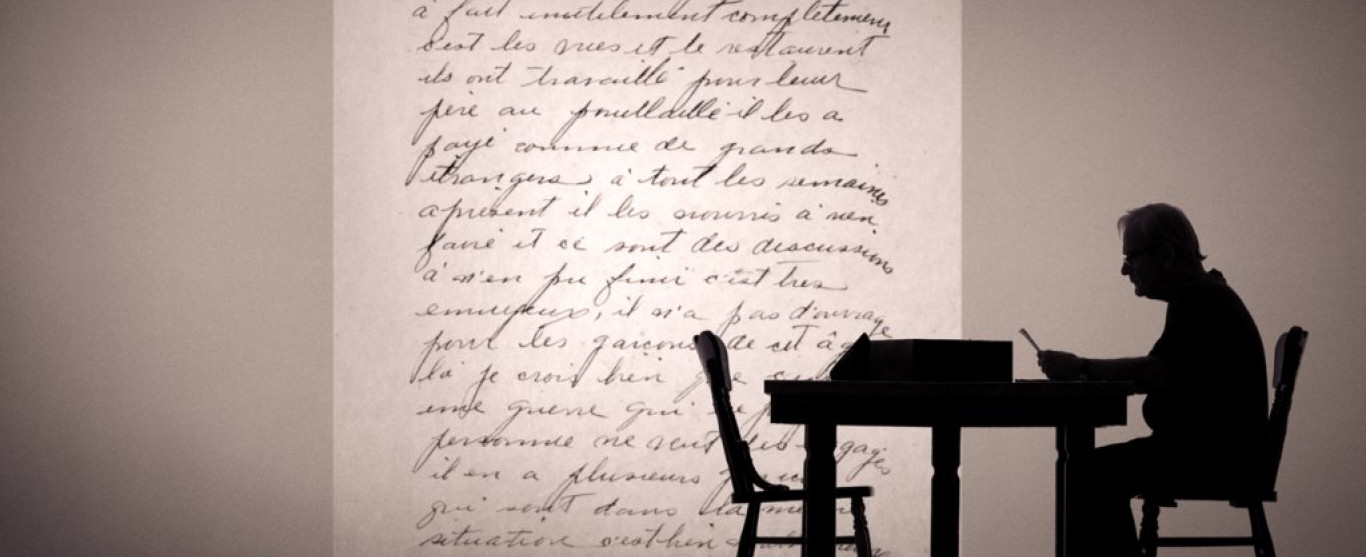 à fait inutilement completement
c'est les rues et le restaurent
ils ont travaillé pour leur
père au poullaillé il les a
payé comme de grands
étrangers, à tout les semaines
apresent il les nourris à rien
faire et ce sont des discussions
à n'en pu finir c'est tres
ennuyeux, il n'a pas d'ouvrage
pour les garçons de cet âge
là je crois bien
une guerre qui
personne ne veut les engagés
il en a plusieurs
qui sont dans la
situation c'est bien